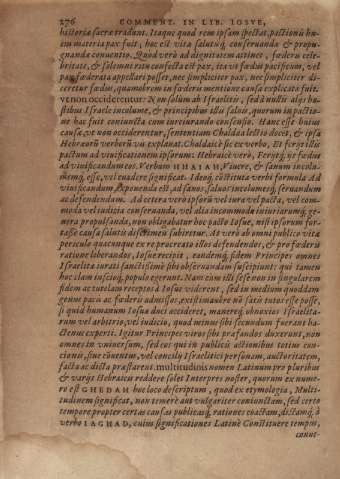 276 COMMENT. IN LIB. IOSVE,
historiæ sacræ tradunt. Itaque quod rem ipsam spectat, pactionis hu-
ius materia pax fuit, hoc est vita salutisq́; conseruandæ & propu-
gnandæ conuentio. Quod verò ad dignitatem attinet, fœdus cele-
britate, & solemni ritu confecta est pax, ita vt fœdus pacificum, vel
pax fœderata appellari posset, nec simpliciter pax, nec simpliciter di-
ceretur fœdus, quamobrem in fœderu mentione causa explicata fuit.
vt non occiderentur. Non solùm ab Israelitis, sed à nullis alijs ho-
stibus Israele incolume, & principibus illis saluis, quorum in pactio-
ne hac fuit coniuncta cum iureiurando consensio. Hanc esse huius
causæ, vt non occiderentur, sententiam Chaldæa lectio docet, & ipsa
Hebræoru̅ verboru̅ vis explanat. Chaldaicè sic ex verbo, Et ferijt illis
pactum ad viuificationem ipsorum: Hebraicè verò, Ferijtq́; eis fœdus
ad viuificandum eos. Verbum HHAIAH, Viuere, & sanum incolu-
memq́; esse, vel euadere significat. Ideoq́; co̅stituta verbi formula Ad
viuificandum, Exponenda est, ad sanos, saluos incolumesq́; seruandum
ac defendendam. Ad cetera verò ipsoru̅ vel iura vel pacta, vel com-
moda vel iudicia conseruanda, vel alia incommoda iniuriarumq́; ge-
nera propulsanda, non obligabatur hoc pacto Iosue, nisi ipsorum for-
tasse causa salutis discrimen subiretur. At verò ab omni publico vitæ
periculo quacunque ex re procreato illos defendendos, & pro fœderis
ratione liberandos, Iosue recipit, eandemq́; fidem Principes omnes
Israelitæ iurati sanctissimè sibi obseruandam suscipiunt: qui tamen
hoc clam inscioq́; populo egerant. Nam cùm illi sese non in singularem
fidem ac tutelam receptos à Iosue viderent, sed in medium quoddam
genus pacis ac fœderis admissos, existimauêre no̅ satis tutos esse posse,
si quid humanum Iosuæ duci accideret, maneretq́; obnoxios Israelita-
rum vel arbitrio, vel iudicio, quod minus sibi secundum fuerant ha-
ctenus experti. Igitur Principes viros sibi præsandos duxerunt, non
omnes in vniuersum, sed eos qui in publicis actionibus totius con-
cionis, siue co̅uentus, vel concilij Israelitici personam, auctoritatem,
facto ac dicta præstarent. multitudinis nomen Latinum pro pluribus
& varijs Hebraicis reddere solet Interpres noster, quorum ex nume-
ro est GHEDAH hoc loco descriptum, quod ex etymologia, Multi-
tudinem significat, non temerè aut vulgariter coniunctam, sed certo
tempore propter certas causas publicasq́; rationes coactam, dictamq́; à
verbo IAGHAD, cuius significationes Latinè Constituere tempus,
conue-